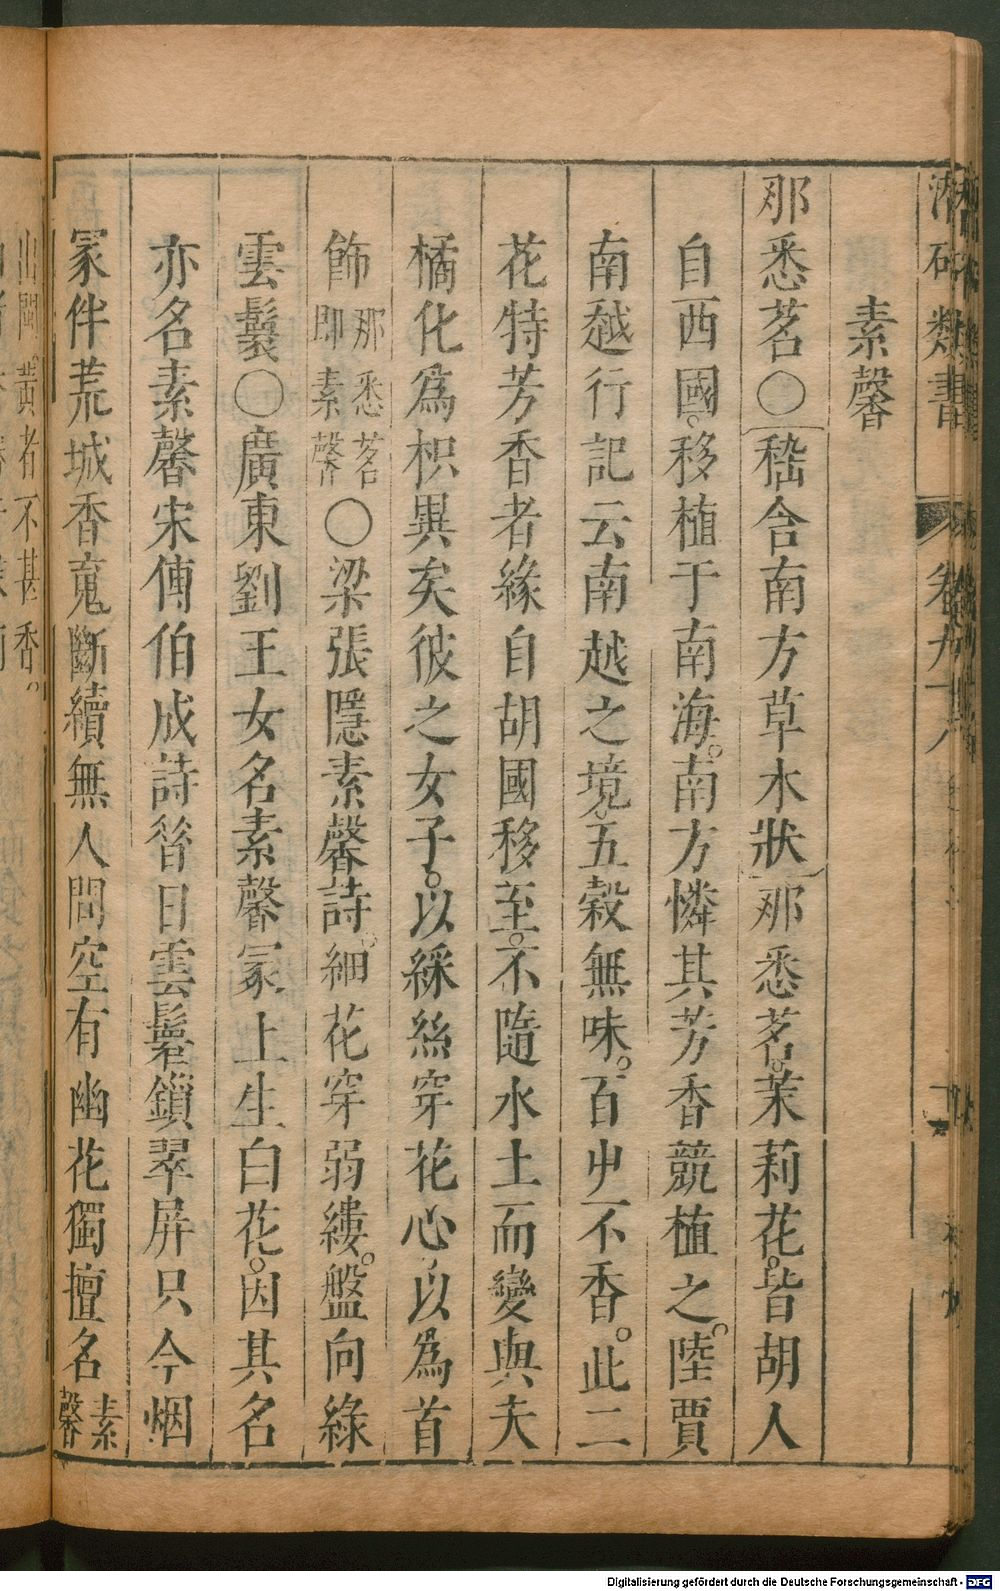 素馨
那悉茗〇嵇含南方草木狀那悉茗。茉莉花。皆胡人
自西國。移植于南海。南方憐其芳香競植之。陸賈
南越行記云南越之境。五穀無味。百屮不香。此二
花特芳香者緣自胡國移至。不隨水土而變與夫
橘化爲枳異矣彼之女子。以綵絲穿花心以爲首
飾那悉茗即素馨〇梁張隱素馨詩。細花穿弱縷。盤向綠
雲鬟〇廣東劉王女名素馨冢上生白花。因其名
亦名素馨宋傅伯成詩昔日雲鬟鎖翠屏只今烟
冢伴荒城香䰟斷續無人問空有幽花獨擅名素馨
Digitalisierung gefördert durch die Deutsche Forschungsgemeinschaft - DFG